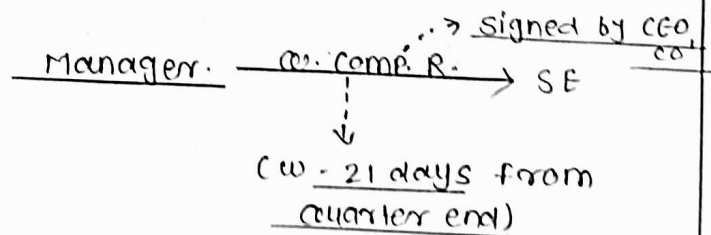 signed by CEO,
CO
Manager. Q. Comp. R. → SE
(w - 21 days from
Quarter end)